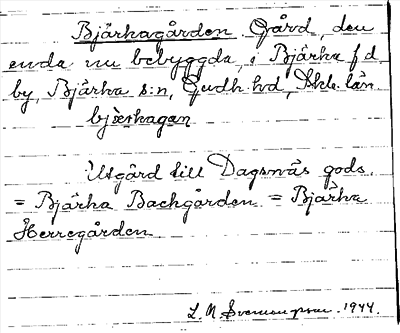 Bjärhagården. Gård, den
enda nu bebyggda, i Bjärha f.d.
by, Bjärka s:n, Gudh. hd, Skbl. län.
bjärhagan
Utgård till Dagsnäs gods.
= Bjärha Backgården = Bjärha
Herregården
L. N. Svensungsson. 1944.